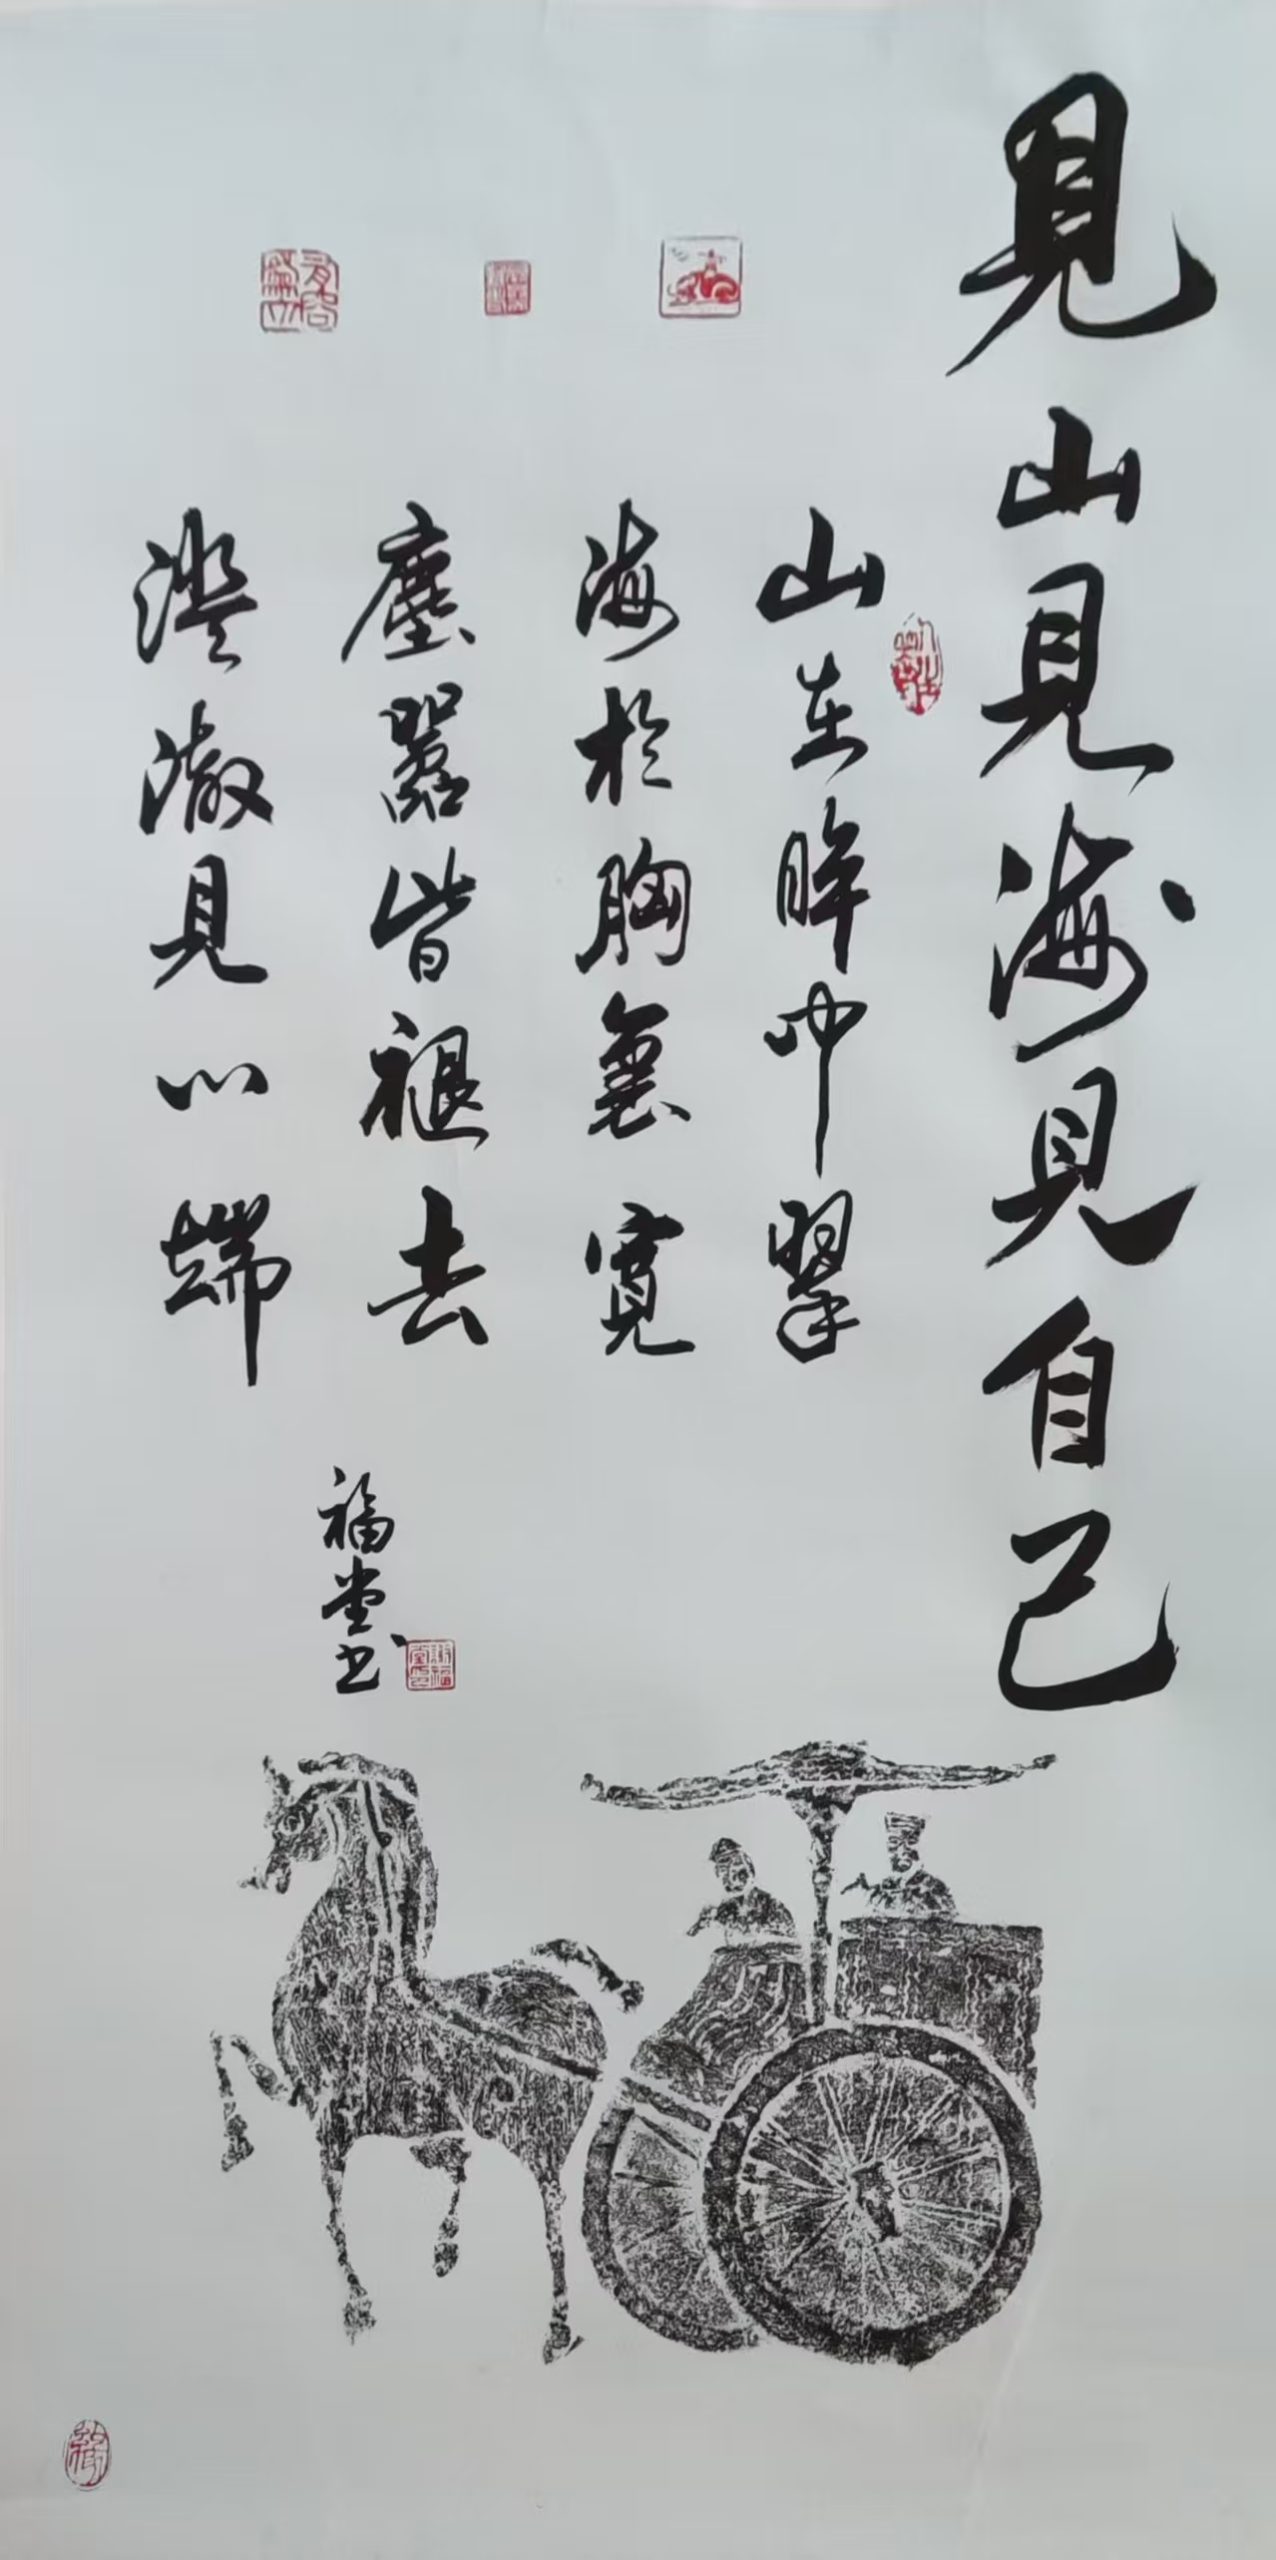 見山見海見自己
山在眸中翠
海於胸襄寬
塵囂皆褪去
澄澈見心端
福堂书